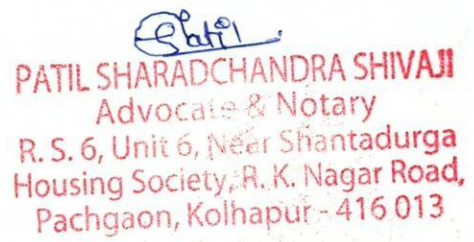 Patil
PATIL SHARADCHANDRA SHIVAJI
Advocate & Notary
R. S. 6, Unit 6, Near Shantadurga
Housing Society, R. K. Nagar Road,
Pachgaon, Kolhapur - 416 013